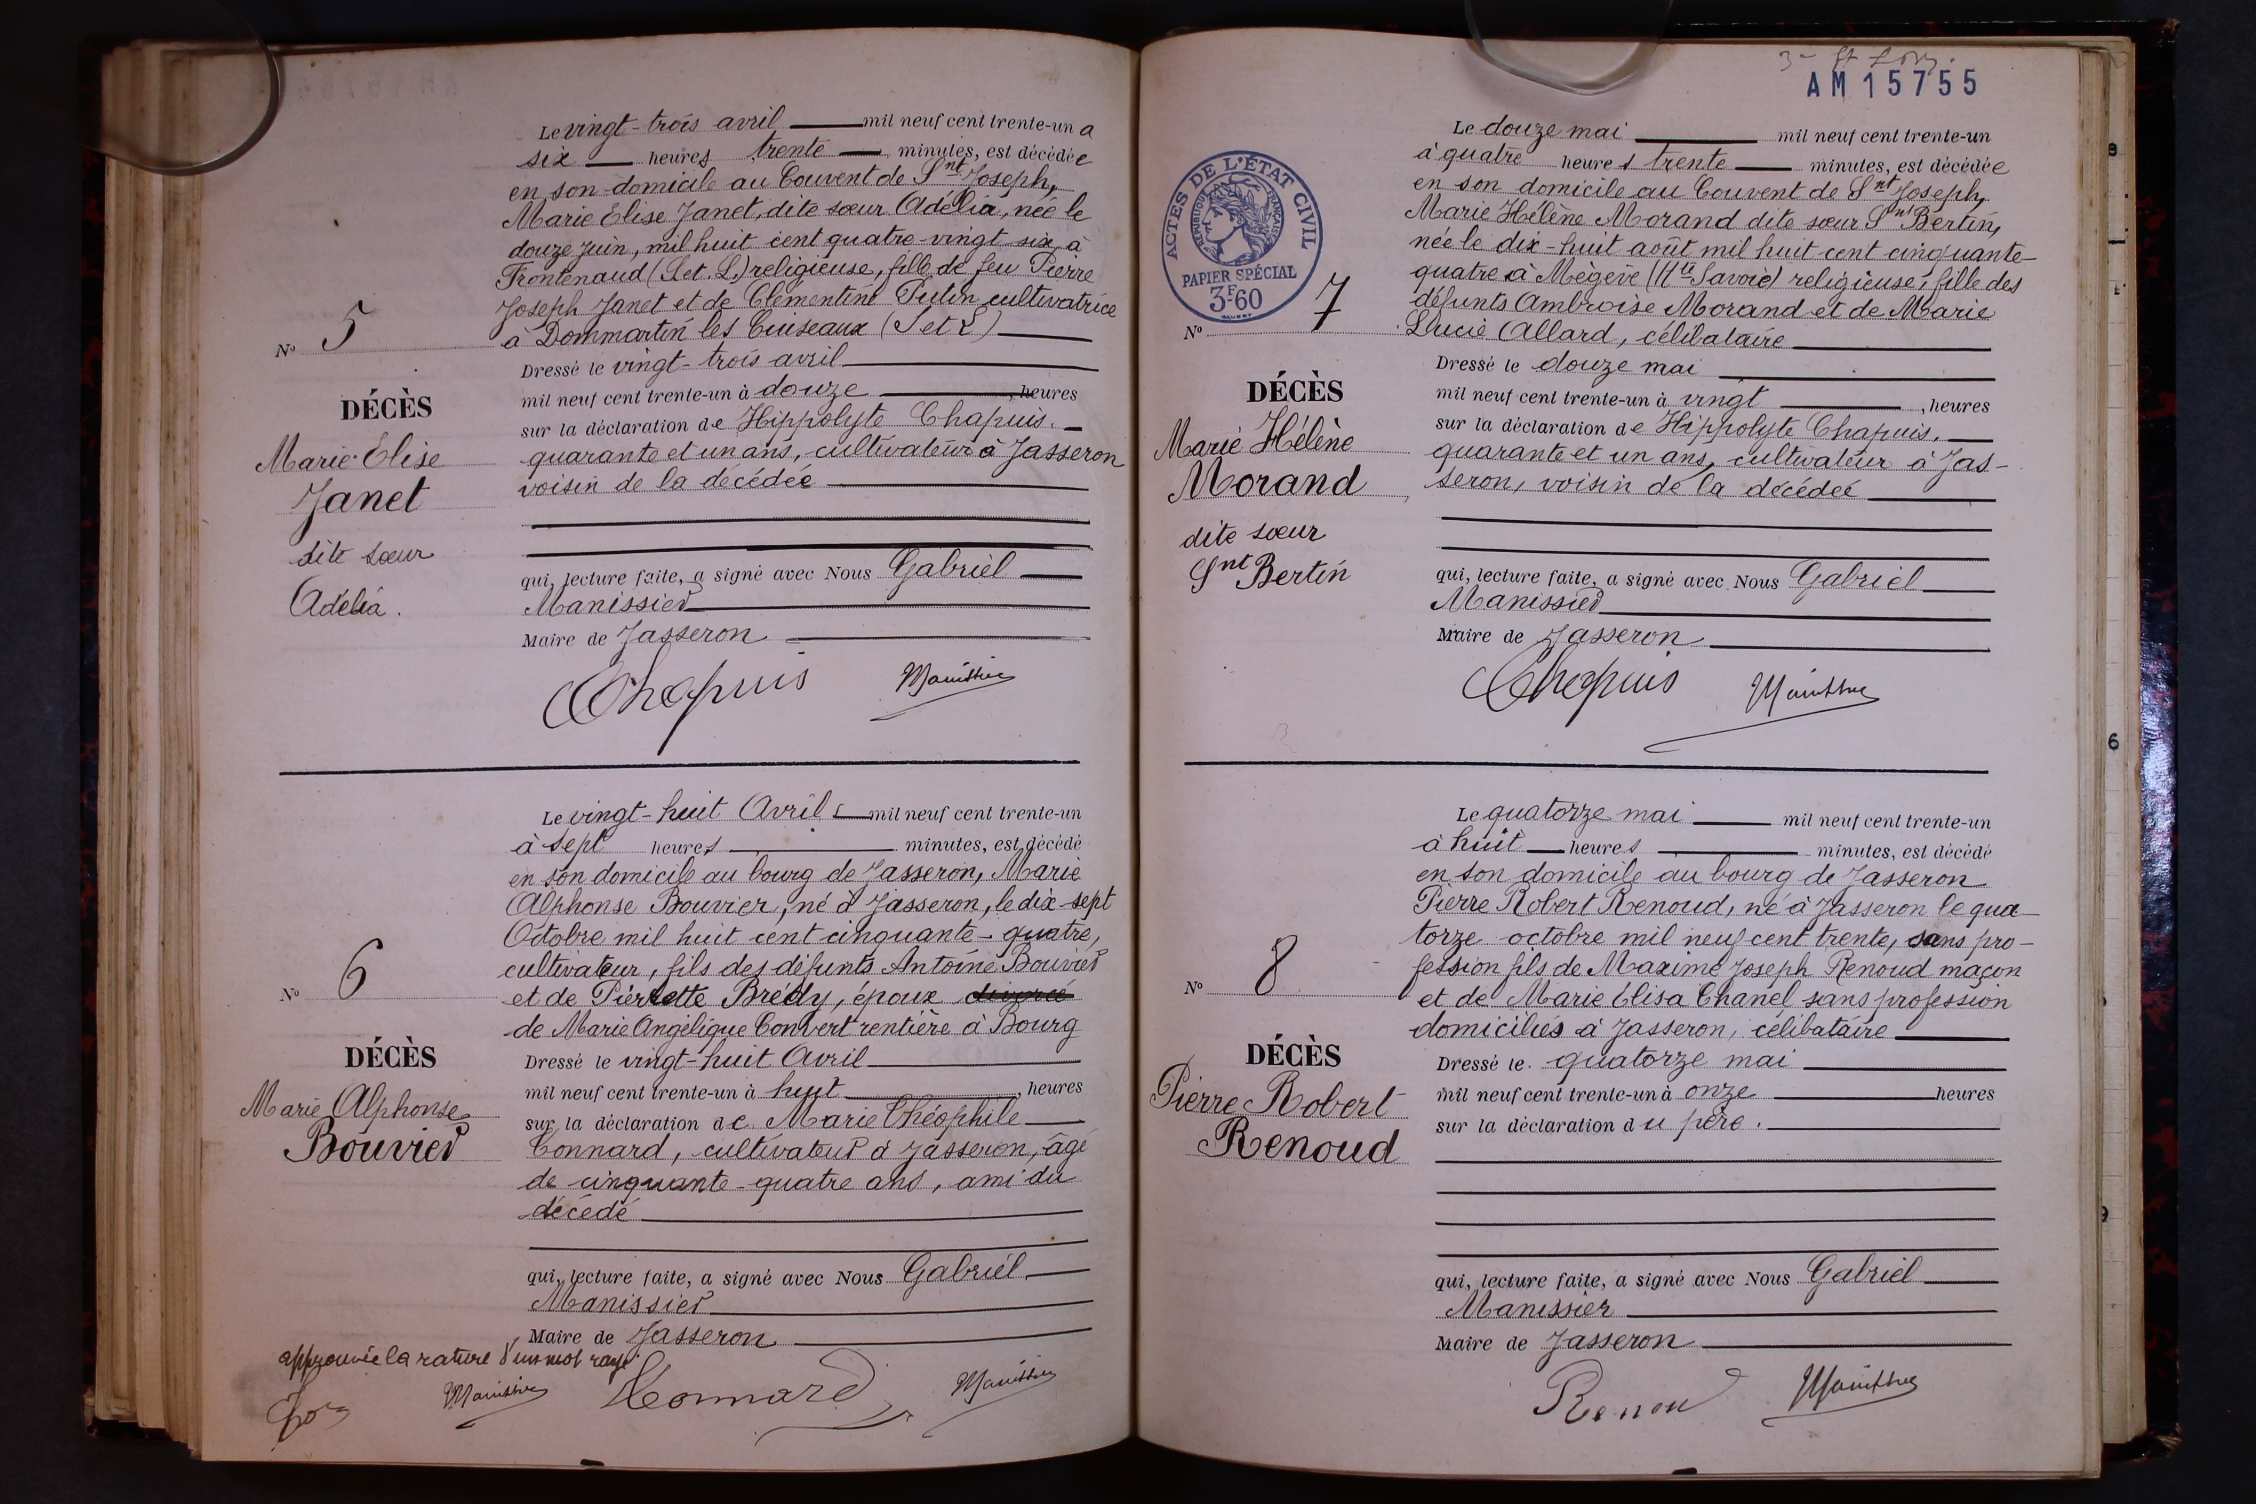 Le vingt-trois avril mil neuf cent trente-un a
six heures trente minutes, est décédée
en son domicile au Couvent de Snt Joseph,
Marie Elise Janet, dite sœur Adélia, née le
douze juin, mil huit cent quatre-vingt six, à
Frontenaud (S. et. L.) religieuse, fille de feu Pierre
Joseph Janet et de Clémentine Putin cultivatrice
à Dommartin les Cuiseaux (S et L)
Dressé le vingt-trois avril
mil neuf cent trente-un à douze, heures
sur la déclaration de Hippolyte Chapuis.
quarante et un ans, cultivateur à Jasseron
voisin de la décédée
qui, lecture faite, a signé avec Nous Gabriel
Manissier
Maire de Jasseron
Chapuis Manissier
No 5
DÉCÈS
Marie-Elise
Janet
dite sœur
Adélia.
Le vingt-huit Avril mil neuf cent trente-un
à sept heures minutes, est décédé
en son domicile au bourg de Jasseron, Marie
Alphonse Bouvier, né à Jasseron, le dix-sept
Octobre mil huit cent cinquante-quatre,
cultivateur, fils des défunts Antoine Bouvier
et de Pierrette Brédy, époux divorcé
de Marie Angélique Convert rentière à Bourg
Dressé le vingt-huit Avril
mil neuf cent trente-un à huit, heures
sur la déclaration de Marie Théophile
Connard, cultivateur à Jasseron, âgé
de cinquante-quatre ans, ami du
décédé
qui, lecture faite, a signé avec Nous Gabriel
Manissier
Maire de Jasseron
No 6
DÉCÈS
Marie Alphonse
Bouvier
approuvée la rature d'un mot rayé
Manissier Connard Manissier
AM15755
ACTES DE L'ÉTAT CIVIL
RÉPUBLIQUE FRANÇAISE
PAPIER SPÉCIAL
3F60
Le douze mai mil neuf cent trente-un
à quatre heures trente minutes, est décédée
en son domicile au Couvent de Snt Joseph,
Marie Hélène Morand dite sœur Snt Bertin,
née le dix-huit août mil huit cent cinquante-
quatre à Mégève (Hte Savoie) religieuse, fille des
défunts Ambroise Morand et de Marie
Lucie Allard, célibataire
Dressé le douze mai
mil neuf cent trente-un à vingt, heures
sur la déclaration de Hippolyte Chapuis.
quarante et un ans, cultivateur à Jas-
seron, voisin de la décédée
qui, lecture faite, a signé avec Nous Gabriel
Manissier
Maire de Jasseron
Chapuis Manissier
No 7
DÉCÈS
Marie Hélène
Morand
dite sœur
Snt Bertin
Le quatorze mai mil neuf cent trente-un
à huit heures minutes, est décédé
en son domicile au bourg de Jasseron
Pierre Robert Renoud, né à Jasseron le qua-
torze octobre mil neuf cent trente, sans pro-
fession fils de Maxime Joseph Renoud maçon
et de Marie Elisa Chanel, sans profession
domiciliés à Jasseron, célibataire
Dressé le quatorze mai
mil neuf cent trente-un à onze heures
sur la déclaration du père.
qui, lecture faite, a signé avec Nous Gabriel
Manissier
Maire de Jasseron
Renou Manissier
No 8
DÉCÈS
Pierre Robert
Renoud
6